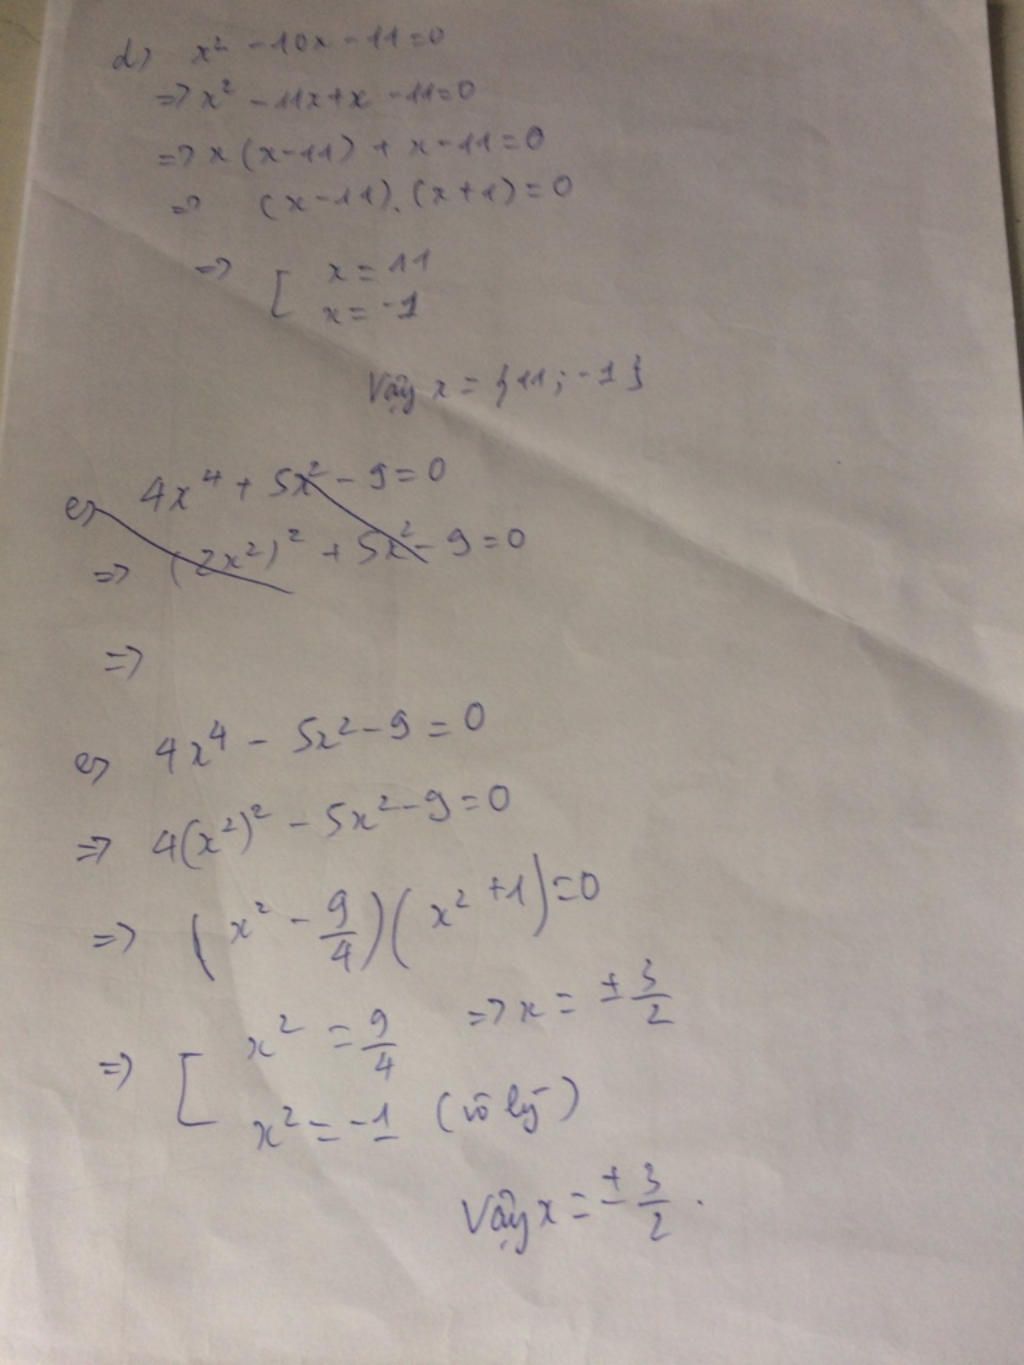 d) x² - 10x - 11 = 0
=> x² - 11x + x - 11 = 0
=> x (x - 11) + x - 11 = 0
=> (x - 11). (x + 1) = 0
=> [ x = 11
x = -1
Vậy x = {11; -1}
e) 4x⁴ + 5x² - 9 = 0
=> (2x²)² + 5x² - 9 = 0
=>
e) 4x⁴ - 5x² - 9 = 0
=> 4(x²)² - 5x² - 9 = 0
=> (x² - 9/4)(x² + 1) = 0
=> [ x² = 9/4 => x = ± 3/2
x² = -1 (vô lý)
Vậy x = ± 3/2.